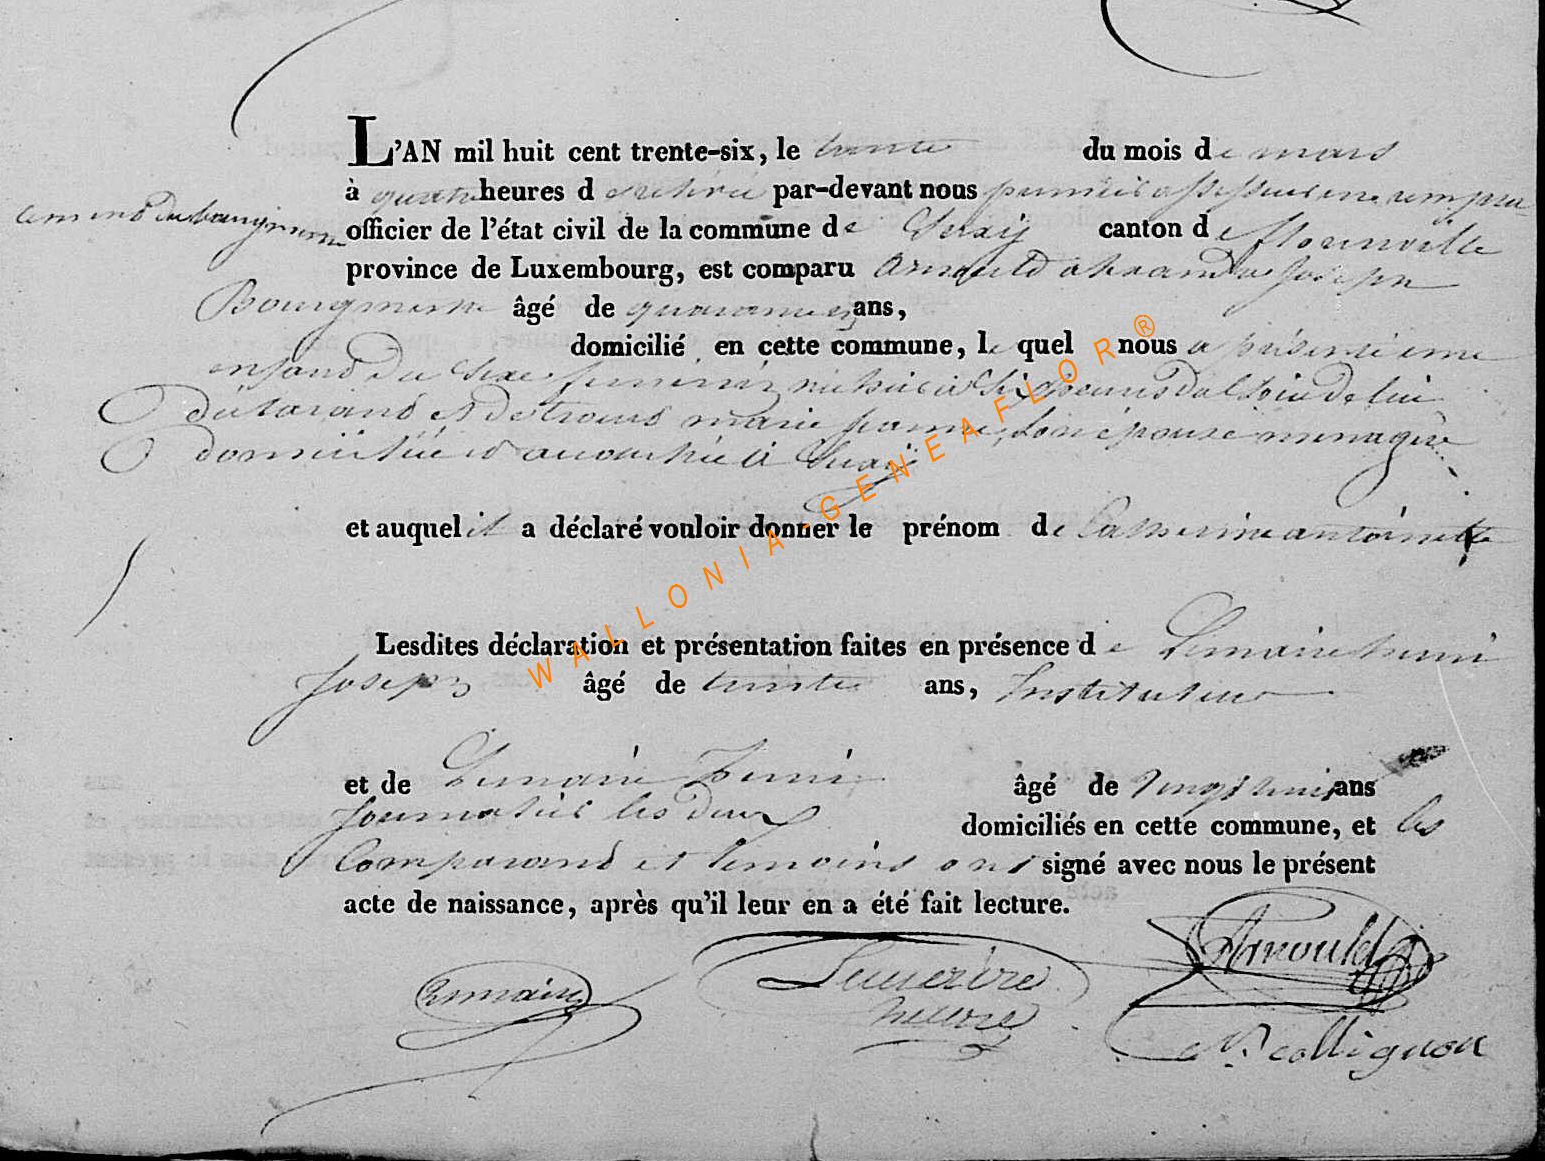 L'AN mil huit cent trente-six, le trente du mois de mars
à quatre heures d par-devant nous premier assesseur en
du bourgmestre
officier de l'état civil de la commune de canton de florenville
province de Luxembourg, est comparu Arnould alexandre Joseph
Bourgmestre âgé de ans,
domicilié en cette commune, le quel nous a présenté une
enfant du sexe feminin de lui
déclarant et de marie jeanne, son épouse menagère
domiciliée et accouchée à
et auquel il a déclaré vouloir donner le prénom de Catherine antoinette
Lesdites déclaration et présentation faites en présence de Lemaire henri
Joseph âgé de trente ans, Instituteur
et de Lemaire âgé de vingt huit ans
Journalier les deux domiciliés en cette commune, et les
Comparant et temoins ont signé avec nous le présent
acte de naissance, après qu'il leur en a été fait lecture.
Arnould
Lemaire
N. Collignon
WALLONIA-GENEAFLOR®